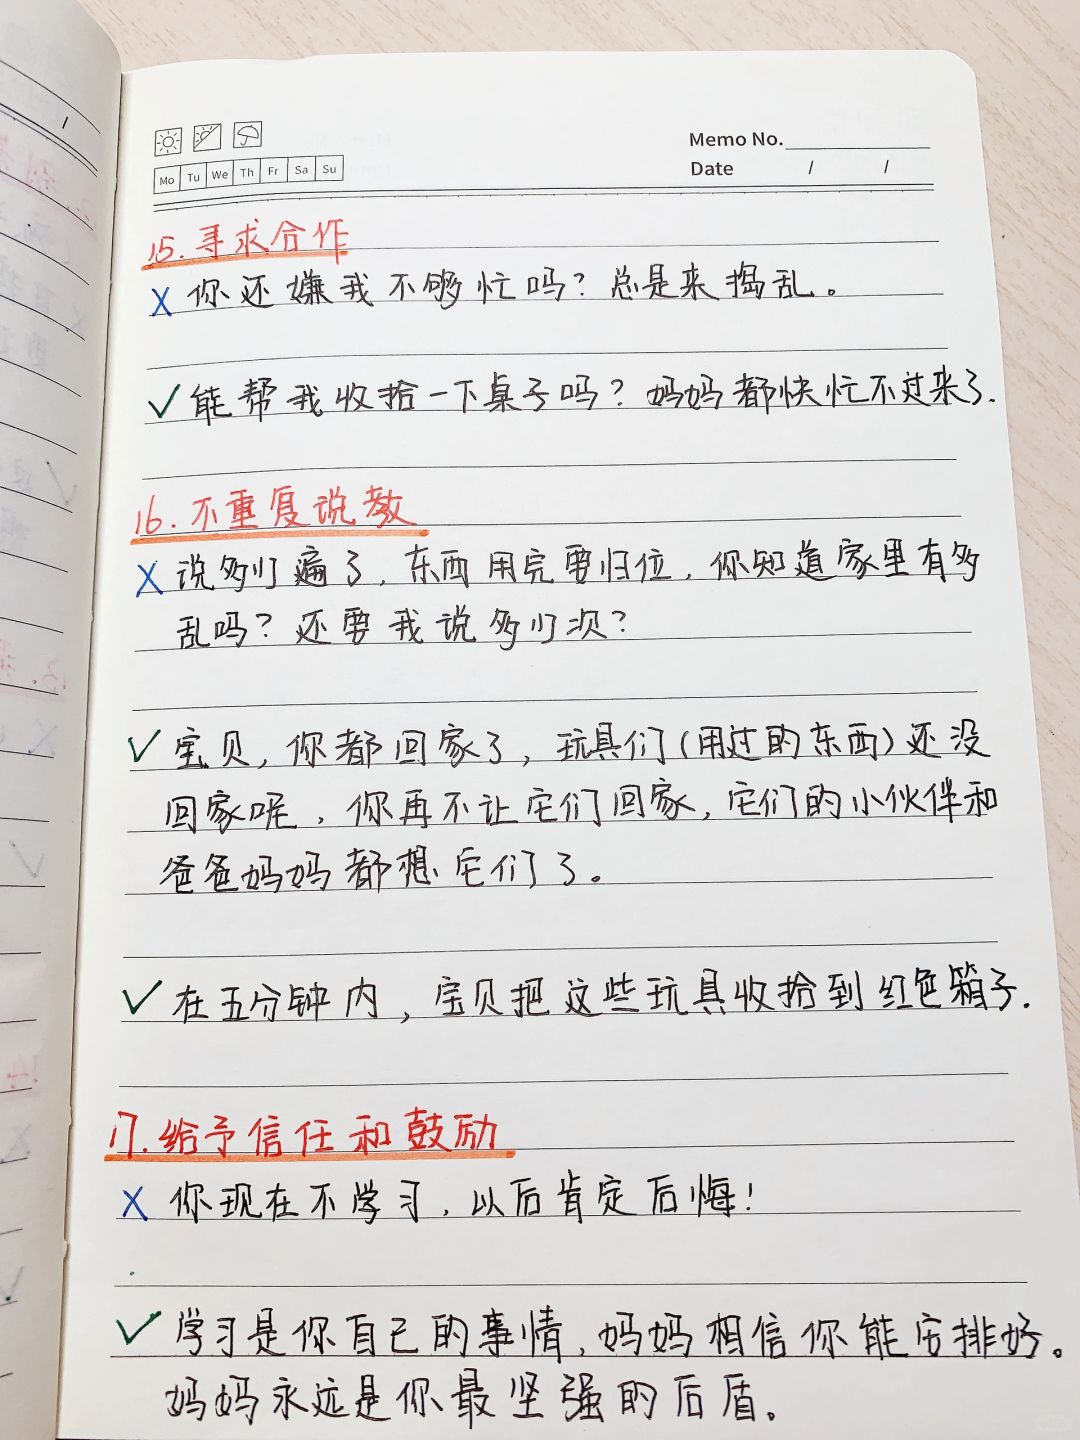 Memo No.
Mo Tu We Th Fr Sa Su
Date / /
15. 寻求合作
X 你还嫌我不够忙吗？总是来捣乱。
✓ 能帮我收拾一下桌子吗？妈妈都快忙不过来了.
16. 不重复说教
X 说多少遍了，东西用完要归位，你知道家里有多
乱吗？还要我说多少次？
✓ 宝贝，你都回家了，玩具们（用过的东西）还没
回家呢，你再不让它们回家，它们的小伙伴和
爸爸妈妈都想它们了。
✓ 在五分钟内，宝贝把这些玩具收拾到红色箱子.
17. 给予信任和鼓励
X 你现在不学习，以后肯定后悔！
✓ 学习是你自己的事情，妈妈相信你能安排好。
妈妈永远是你最坚强的后盾。